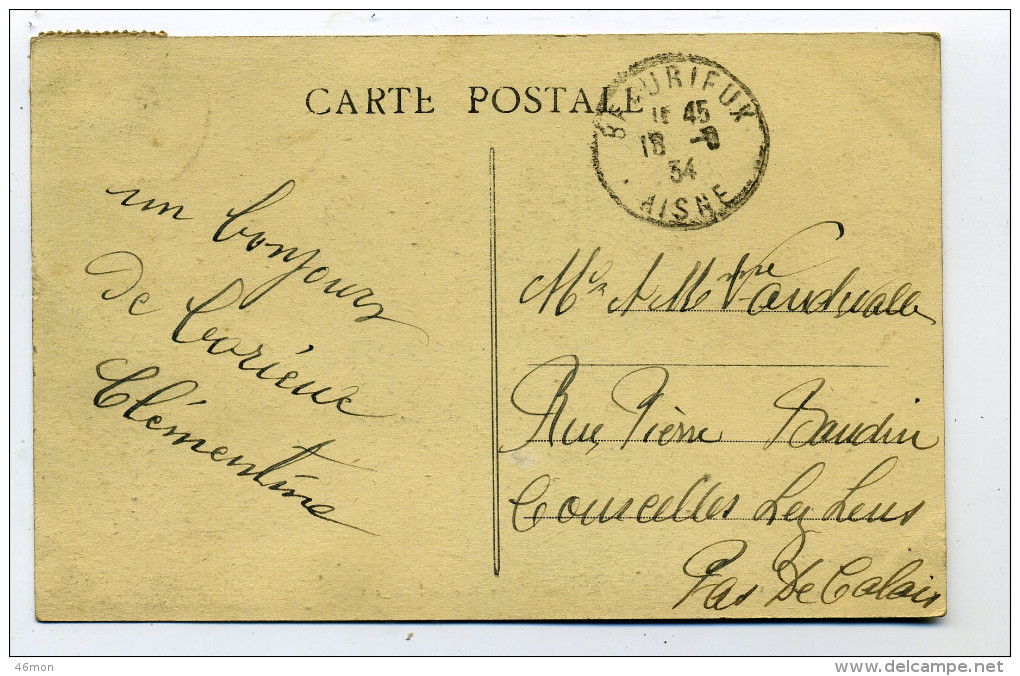 CARTE POSTALE
BEAURIEUX
11 45
18 -8
34
AISNE
un bonjour
de Coriène
Clémentine
Mr A Mme Vandwalle
Rue Pierre Baudin
Courcelles Lez Lens
Pas De Calais
46mon
delcampe.net